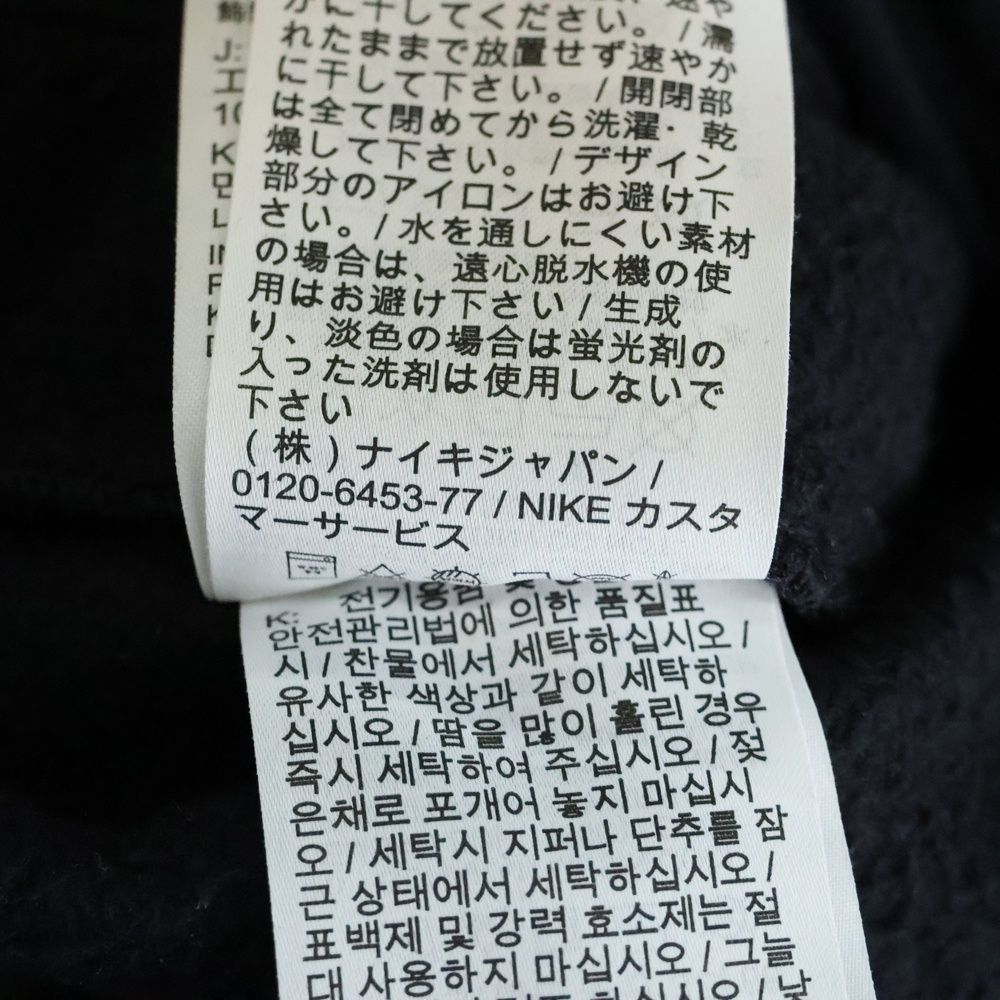 かに干してください。/濡
れたままで放置せず速やか
に干して下さい。/開閉部
は全て閉めてから洗濯・乾
燥して下さい。/デザイン
部分のアイロンはお避け下
さい。/水を通しにくい素材
の場合は、遠心脱水機の使
用はお避け下さい/生成
り、淡色の場合は蛍光剤の
入った洗剤は使用しないで
下さい
(株)ナイキジャパン/
0120-6453-77 / NIKE カスタ
マーサービス
J:
工
10
K
민
나
IN
K: 전기용품 및
안전관리법에 의한 품질표
시/찬물에서 세탁하십시오/
유사한 색상과 같이 세탁하
십시오/땀을 많이 흘린 경우
즉시 세탁하여 주십시오/젖
은채로 포개어 놓지 마십시
오/세탁시 지퍼나 단추를 잠
근 상태에서 세탁하십시오/
표백제 및 강력 효소제는 절
대 사용하지 마십시오/그늘